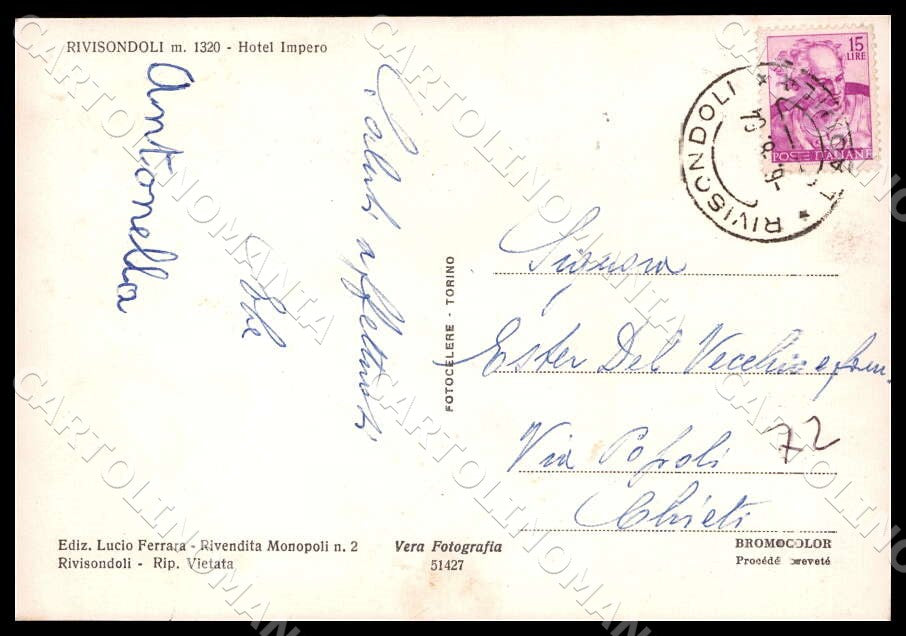 RIVISONDOLI m. 1320 - Hotel Impero
Antonella
Saluti affettuosi
15
LIRE
POSTE ITALIANE
RIVISONDOLI
Signora
Ester Del Vecchio e fam.
Via Popoli
72
Chieti
FOTOCELERE - TORINO
Ediz. Lucio Ferrara - Rivendita Monopoli n. 2
Rivisondoli - Rip. Vietata
Vera Fotografia
51427
BROMOCOLOR
Procédé breveté
CARTOLINOMANIA